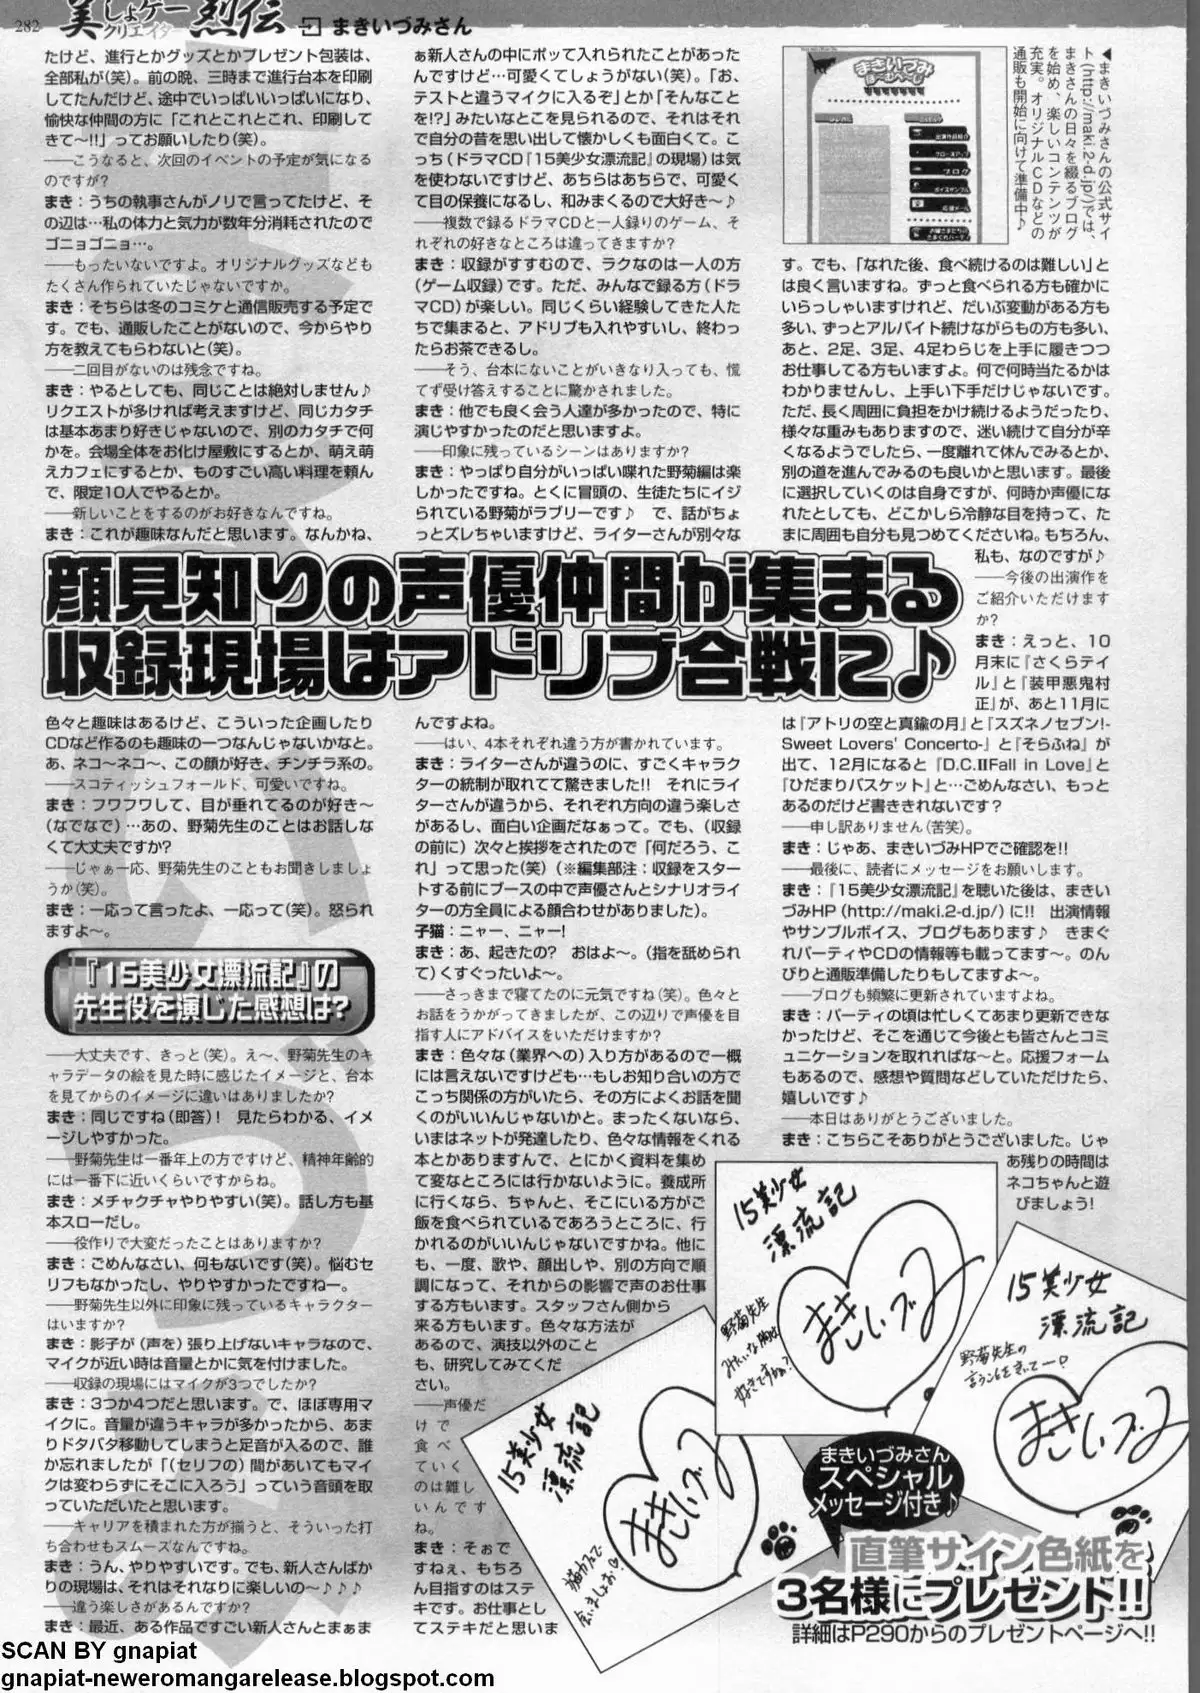 282
美しょゲー
クリエイター 烈伝
まきいづみさん
たけど、進行とかグッズとかプレゼント包装は、
全部私が(笑)。前の晩、三時まで進行台本を印刷
してたんだけど、途中でいっぱいいっぱいになり、
愉快な仲間の方に「これとこれとこれ、印刷して
きて〜!!」ってお願いしたり(笑)。
――こうなると、次回のイベントの予定が気になる
のですが?
まき：うちの執事さんがノリで言ってたけど、そ
の辺は…私の体力と気力が数年分消耗されたので
ゴニョゴニョ…。
――もったいないですよ。オリジナルグッズなども
たくさん作られていたじゃないですか。
まき：そちらは冬のコミケと通信販売する予定で
す。でも、通販したことがないので、今からやり
方を教えてもらわないと(笑)。
――二回目がないのは残念ですね。
まき：やるとしても、同じことは絶対しません♪
リクエストが多ければ考えますけど、同じカタチ
は基本あまり好きじゃないので、別のカタチで何
かを。会場全体をお化け屋敷にするとか、萌え萌
えカフェにするとか、ものすごい高い料理を頼ん
で、限定10人でやるとか。
――新しいことをするのがお好きなんですね。
まき：これが趣味なんだと思います。なんかね、
顔見知りの声優仲間が集まる
収録現場はアドリブ合戦に♪
色々と趣味はあるけど、こういった企画したり
CDなど作るのも趣味の一つなんじゃないかなと。
あ、ネコ〜ネコ〜、この顔が好き、チンチラ系の。
――スコティッシュフォールド、可愛いですね。
まき：フワフワして、目が垂れてるのが好き〜
(なでなで)…あの、野菊先生のことはお話しな
くて大丈夫ですか?
――じゃぁ一応、野菊先生のこともお聞きしましょ
うか(笑)。
まき：一応って言ったよ、一応って(笑)。怒られ
ますよ〜。
『15美少女漂流記』の
先生役を演じた感想は?
――大丈夫です、きっと(笑)。え〜、野菊先生のキ
ャラデータの絵を見た時に感じたイメージと、台本
を見てからのイメージに違いはありましたか?
まき：同じですね(即答)! 見たらわかる、イメ
ージしやすかった。
――野菊先生は一番年上の方ですけど、精神年齢的
には一番下に近いくらいですからね。
まき：メチャクチャやりやすい(笑)。話し方も基
本スローだし。
――役作りで大変だったことはありますか?
まき：ごめんなさい、何もないです(笑)。悩むセ
リフもなかったし、やりやすかったですねー。
――野菊先生以外に印象に残っているキャラクター
はいますか?
まき：影子が(声を)張り上げないキャラなので、
マイクが近い時は音量とかに気を付けました。
――収録の現場にはマイクが3つでしたか?
まき：3つか4つだと思います。で、ほぼ専用マ
イクに。音量が違うキャラが多かったから、あま
りドタバタ移動してしまうと足音が入るので、誰
か忘れましたが「(セリフの)間があいてもマイ
クは変わらずにそこに入ろう」っていう音頭を取
っていただいたと思います。
――キャリアを積まれた方が揃うと、そういった打
ち合わせもスムーズなんですね。
まき：うん、やりやすいです。でも、新人さんばか
りの現場は、それはそれなりに楽しいの〜♪♪♪
――違う楽しさがあるんですか?
まき：最近、ある作品ですごい新人さんとまぁま
ぁ新人さんの中にポッて入れられたことがあった
んですけど…可愛くてしょうがない(笑)。「お、
テストと違うマイクに入るぞ」とか「そんなこと
を!?」みたいなとこを見られるので、それはそれ
で自分の昔を思い出して懐かしくも面白くて。こ
っち(ドラマCD『15美少女漂流記』の現場)は気
を使わないですけど、あちらはあちらで、可愛く
て目の保養になるし、和みまくるので大好き〜♪
――複数で録るドラマCDと一人録りのゲーム、そ
れぞれの好きなところは違ってきますか?
まき：収録がすすむので、ラクなのは一人の方
(ゲーム収録)です。ただ、みんなで録る方(ドラ
マCD)が楽しい。同じくらい経験してきた人た
ちで集まると、アドリブも入れやすいし、終わっ
たらお茶できるし。
――そう、台本にないことがいきなり入っても、慌
てず受け答えすることに驚かされました。
まき：他でも良く会う人達が多かったので、特に
演じやすかったのだと思いますよ。
――印象に残っているシーンはありますか?
まき：やっぱり自分がいっぱい喋れた野菊編は楽
しかったですね。とくに冒頭の、生徒たちにイジ
られている野菊がラブリーです♪ で、話がちょ
っとズレちゃいますけど、ライターさんが別々な
んですよね。
――はい、4本それぞれ違う方が書かれています。
まき：ライターさんが違うのに、すごくキャラク
ターの統制が取れてて驚きました!! それにライ
ターさんが違うから、それぞれ方向の違う楽しさ
があるし、面白い企画だなぁって。でも、(収録
の前に)次々と挨拶をされたので「何だろう、こ
れ」って思った(笑)(※編集部注：収録をスター
トする前にブースの中で声優さんとシナリオライ
ターの方全員による顔合わせがありました)。
子猫：ニャー、ニャー!
まき：あ、起きたの? おはよ〜。(指を舐められ
て)くすぐったいよ〜。
――さっきまで寝てたのに元気ですね(笑)。色々と
お話をうかがってきましたが、この辺りで声優を目
指す人にアドバイスをいただけますか?
まき：色々な(業界への)入り方があるので一概
には言えないですけども…もしお知り合いの方で
こっち関係の方がいたら、その方によくお話を聞
くのがいいんじゃないかと。まったくないなら、
いまはネットが発達したり、色々な情報をくれる
本とかありますんで、とにかく資料を集め
て変なところには行かないように。養成所
に行くなら、ちゃんと、そこにいる方がご
飯を食べられているであろうところに、行
かれるのがいいんじゃないですかね。他に
も、一度、歌や、顔出しや、別の方向で順
調になって、それからの影響で声のお仕事
する方もいます。スタッフさん側から
来る方もいます。色々な方法が
あるので、演技以外のこと
も、研究してみてくだ
さい。
――声優だ
けで
食べ
ていく
のは難し
いんです
ね。
まき：そぉで
すねぇ、もちろ
ん目指すのはステ
キです。お仕事とし
てステキだと思いま
◀まきいづみさんの公式サイ
ト(http://maki.2-d.jp/)では、
まきさんの日々を綴るブログ
を始め、楽しいコンテンツが
充実。オリジナルCDなどの
通販も開始に向けて準備中♪
まきいづみ
ほーむぺーじ
ブログ
ボイスサンプル
す。でも、「なれた後、食べ続けるのは難しい」と
は良く言いますね。ずっと食べられる方も確かに
いらっしゃいますけれど、だいぶ変動がある方も
多い、ずっとアルバイト続けながらもの方も多い、
あと、2足、3足、4足わらじを上手に履きつつ
お仕事してる方もいますよ。何で何時当たるかは
わかりませんし、上手い下手だけじゃないです。
ただ、長く周囲に負担をかけ続けるようだったり、
様々な重みもありますので、迷い続けて自分が辛
くなるようでしたら、一度離れて休んでみるとか、
別の道を進んでみるのも良いかと思います。最後
に選択していくのは自身ですが、何時か声優にな
れたとしても、どこかしら冷静な目を持って、た
まに周囲も自分も見つめてくださいね。もちろん、
私も、なのですが♪
――今後の出演作を
ご紹介いただけます
か?
まき：えっと、10
月末に『さくらテイ
ル』と『装甲悪鬼村
正』が、あと11月に
は『アトリの空と真鍮の月』と『スズネノセブン!-
Sweet Lovers' Concerto-』と『そらふね』が
出て、12月になると『D.C.ⅡFall in Love』と
『ひだまりバスケット』と…ごめんなさい、もっと
あるのだけど書ききれないです?
――申し訳ありません(苦笑)。
まき：じゃあ、まきいづみHPでご確認を!!
――最後に、読者にメッセージをお願いします。
まき：『15美少女漂流記』を聴いた後は、まきい
づみHP(http://maki.2-d.jp/)に!! 出演情報
やサンプルボイス、ブログもあります♪ きまぐ
れパーティやCDの情報等も載ってます〜。のん
びりと通販準備したりもしてますよ〜。
――ブログも頻繁に更新されていますよね。
まき：パーティの頃は忙しくてあまり更新できな
かったけど、そこを通じて今後とも皆さんとコミ
ュニケーションを取れればな〜と。応援フォーム
もあるので、感想や質問などしていただけたら、
嬉しいです♪
――本日はありがとうございました。
まき：こちらこそありがとうございました。じゃ
あ残りの時間は
ネコちゃんと遊
びましょう!
15美少女
漂流記
まきいづみ
野菊先生
みたいな
好きですか?
15美少女
漂流記
野菊先生の
まきいづみ
15美少女
漂流記
まきいづみ
猫カフェで
会いましょお!
まきいづみさん
スペシャル
メッセージ付き♪
直筆サイン色紙を
3名様にプレゼント!!
詳細はP290からのプレゼントページへ!!
SCAN BY gnapiat
gnapiat-neweromangarelease.blogspot.com